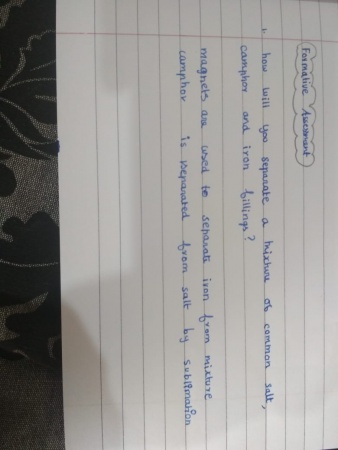 Formative Assesment
1. how will you separate a mixture of common salt,
camphor and iron fillings?
magnets are used to separate iron from mixture
camphor is separated from salt by sublimation